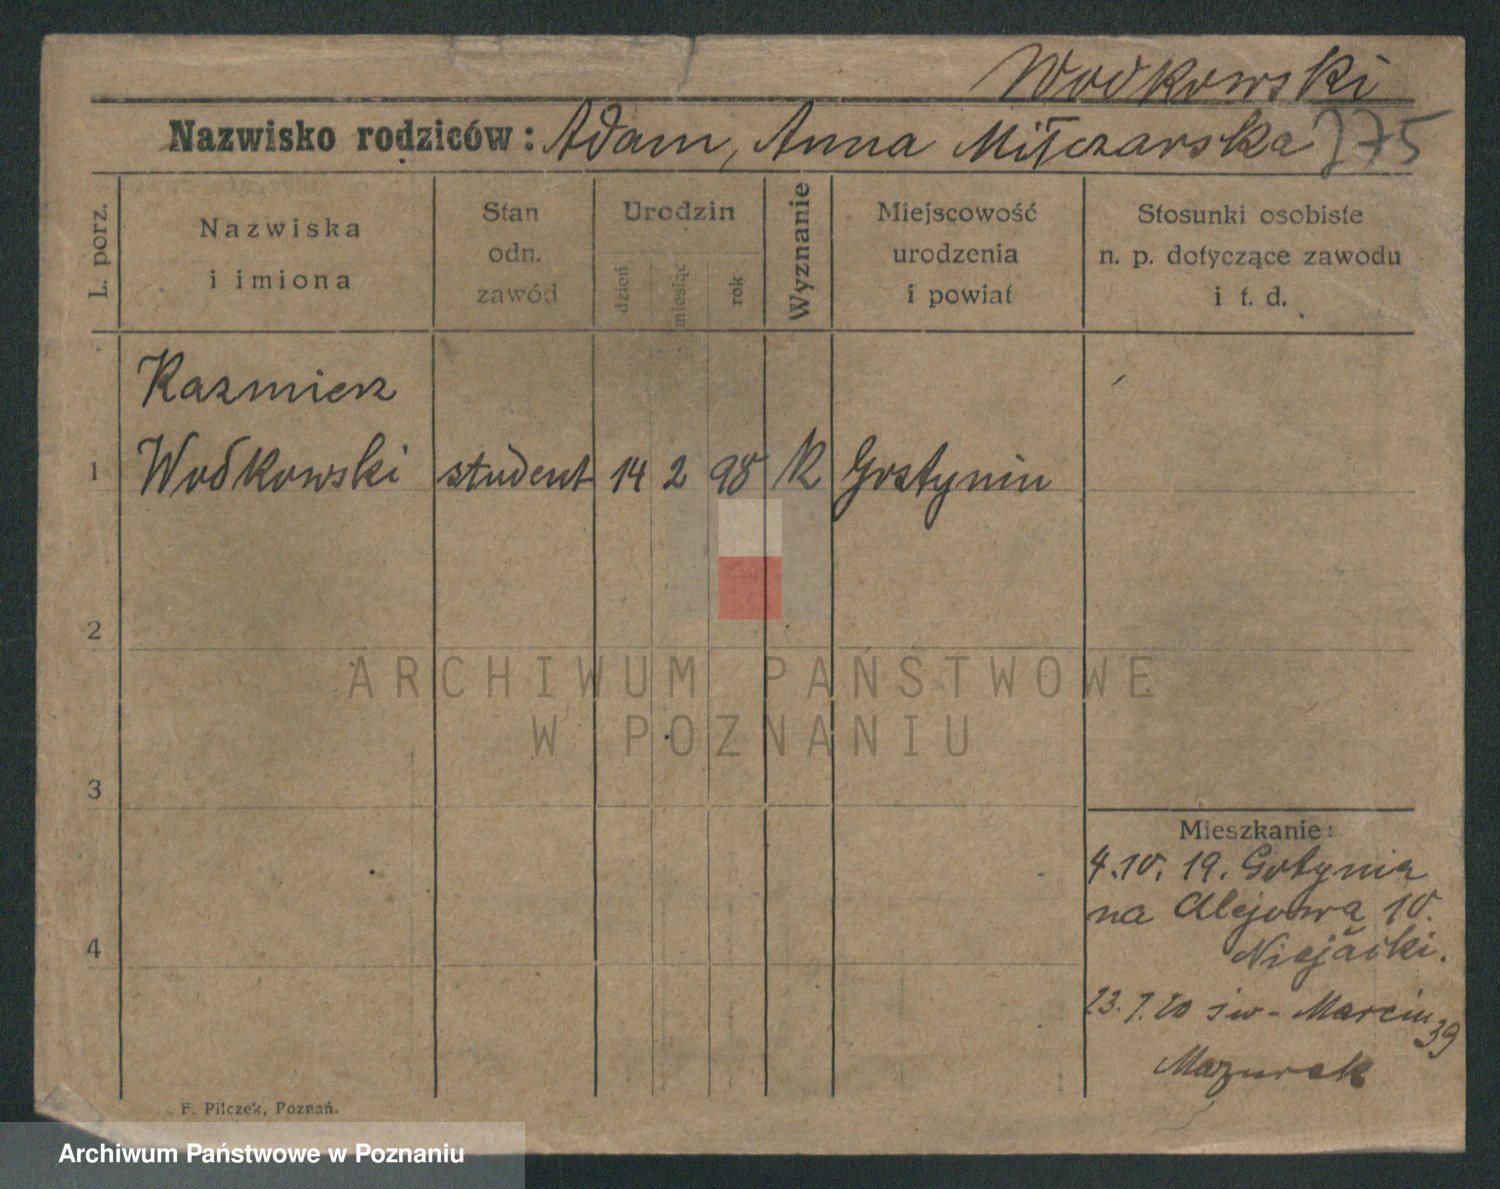 Wodkowski
Nazwisko rodziców: Adam, Anna Milczarska 275
L. porz.
Nazwiska
i imiona
Stan
odn.
zawód
Urodzin
dzień
miesiąc
rok
Wyznanie
Miejscowość
urodzenia
i powiat
Stosunki osobiste
n. p. dotyczące zawodu
i t. d.
Kazmierz
1 Wodkowski student 14 2 98 K Gostynin
2
ARCHIWUM PAŃSTWOWE
W POZNANIU
3
4
Mieszkanie:
4.10. 19. Gostynin
na Alejowa 10.
23. 7. 20 św- Marcin 39
Mazurek
F. Pilczek, Poznań.
Archiwum Państwowe w Poznaniu